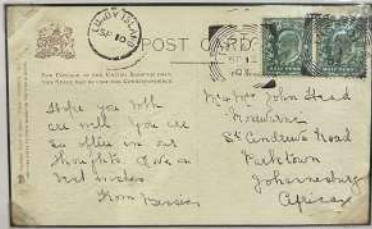 LUNDY ISLAND
SP 10
POST CARD
SP 12
Hope you both
are well. You are
so often in our
thoughts. Love and
best wishes
from Bessie
Mr & Mrs John Head
St Andrews Road
Parktown
Johannesburg
Africa